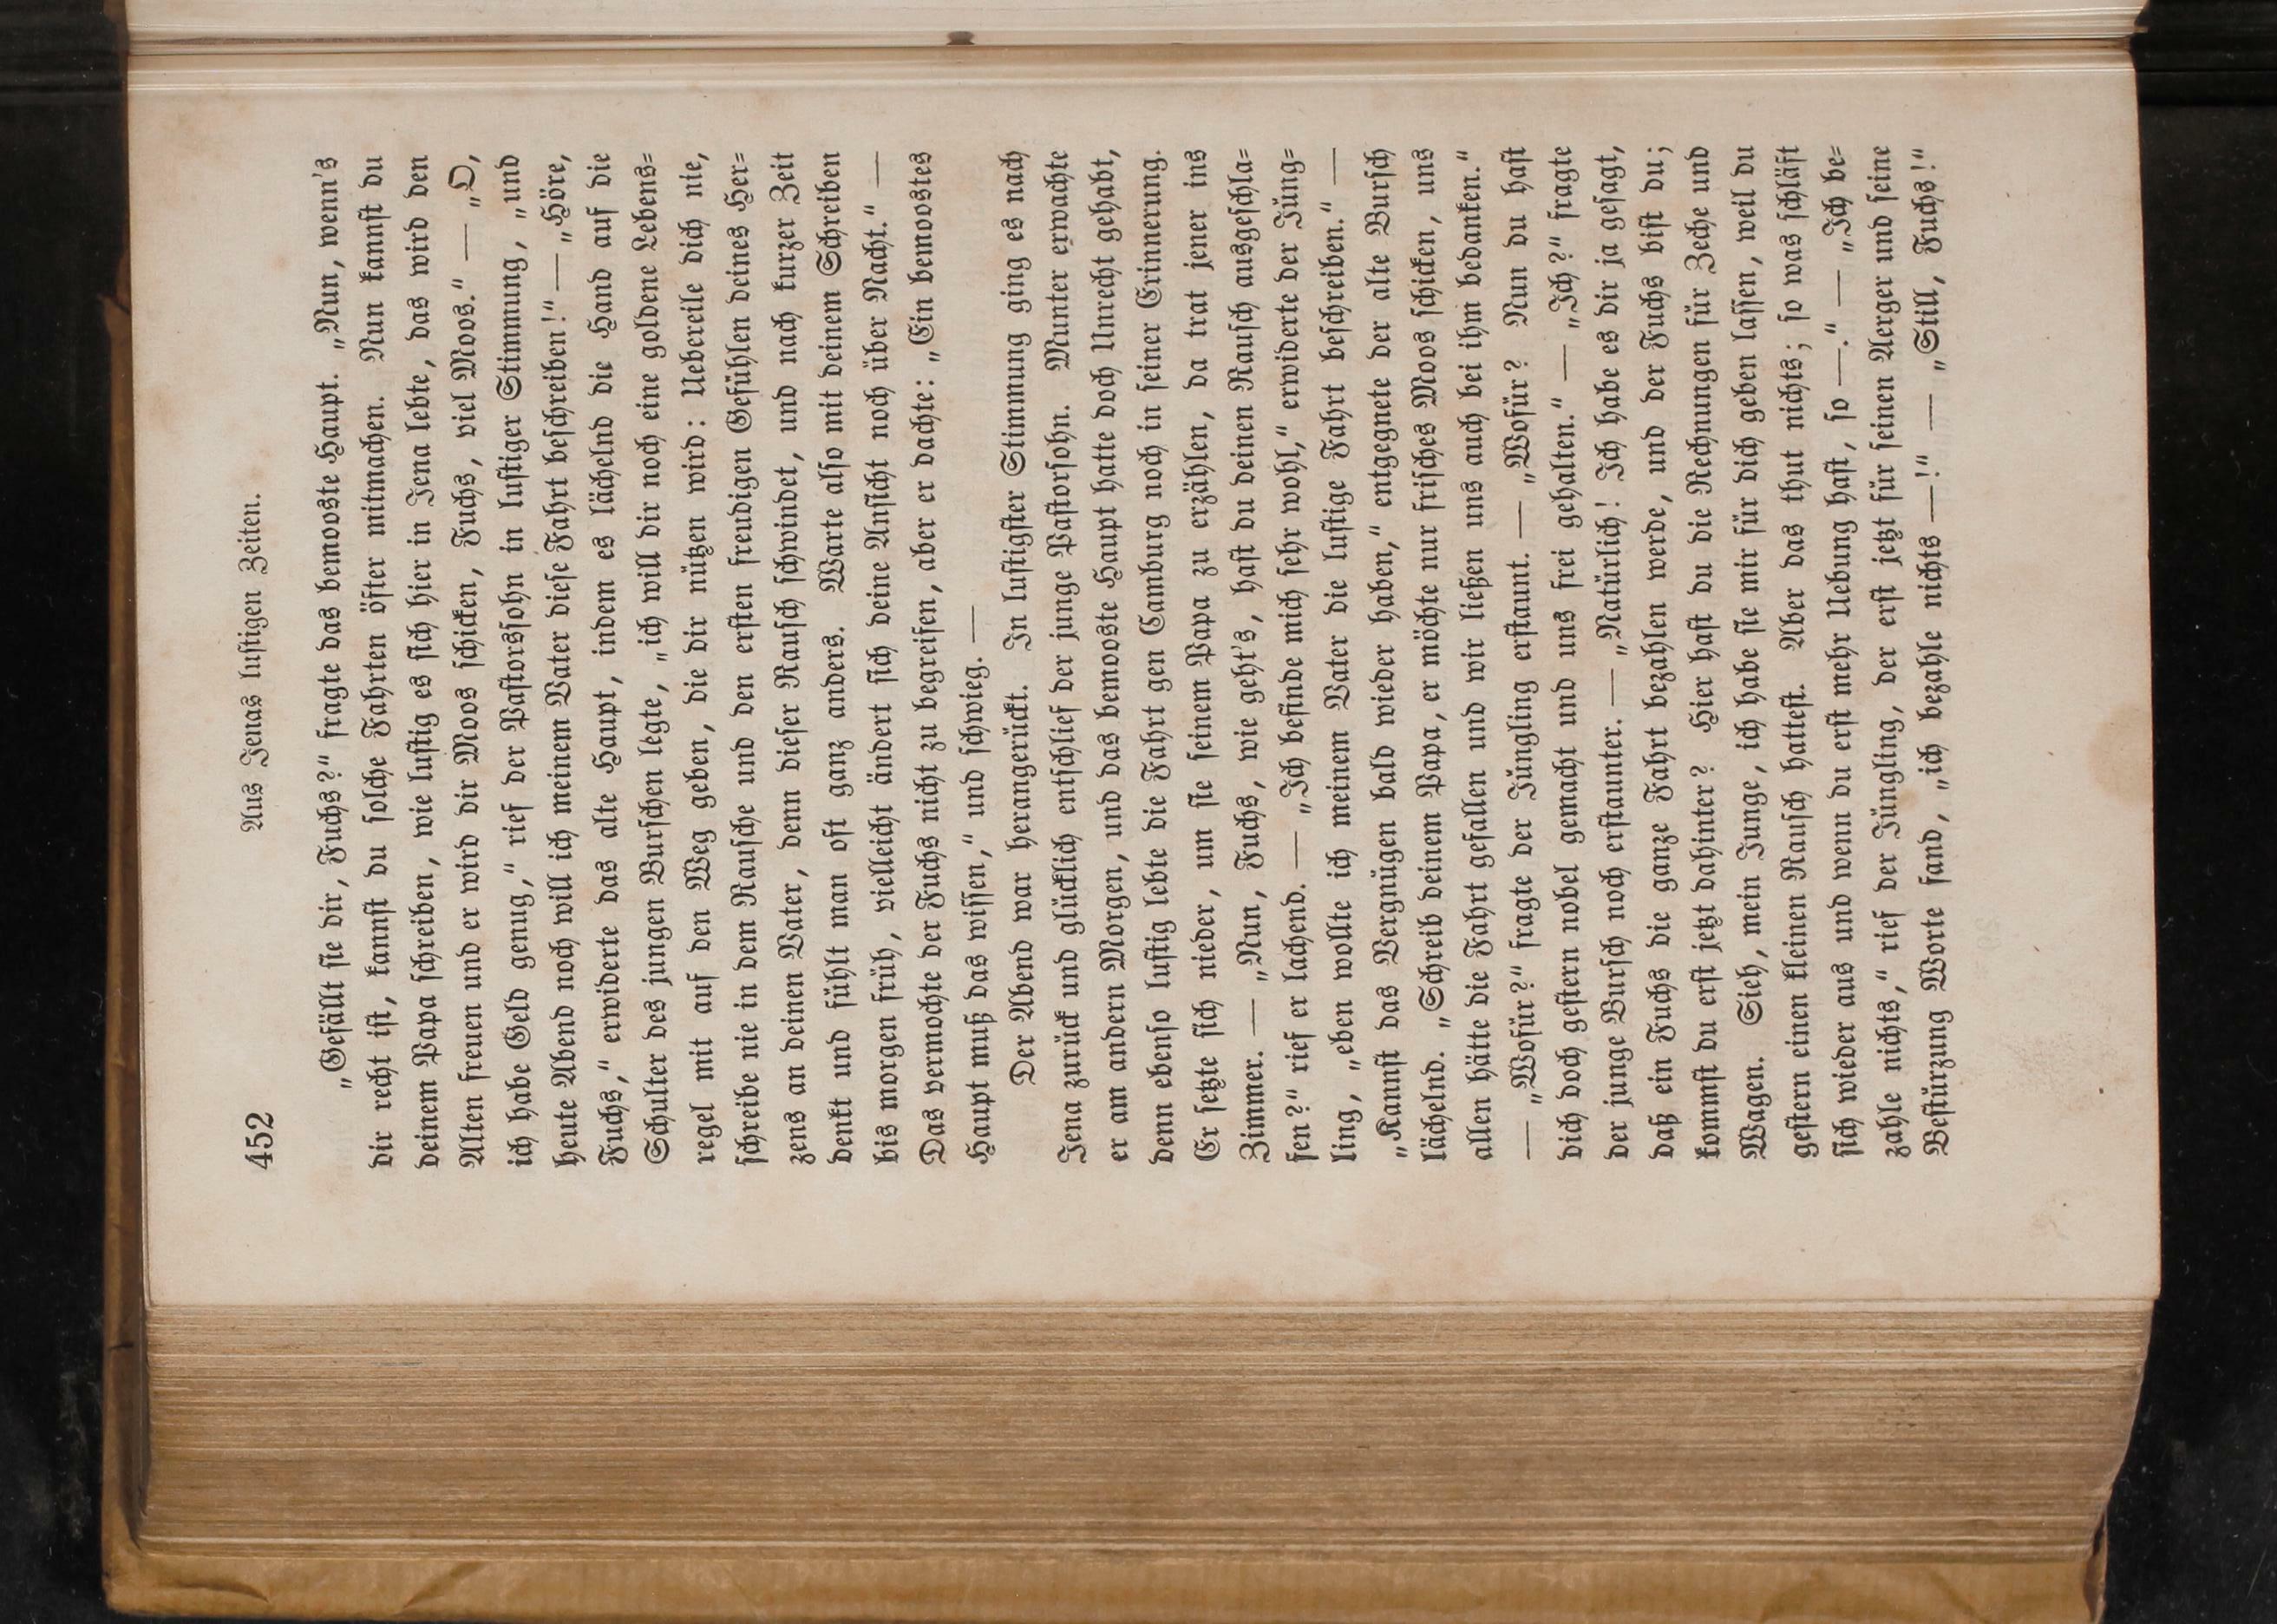 452
Aus Jenas luſtigen Zeiten.
„Gefällt ſie dir, Fuchs?“ fragte das bemooste Haupt. „Nun, wenn's
dir recht iſt, kannſt du ſolche Fahrten öfter mitmachen. Nun kannſt du
deinem Papa ſchreiben, wie luſtig es ſich hier in Jena lebte, das wird den
Alten freuen und er wird dir Moos ſchicken, Fuchs, viel Moos.“ — „O,
ich habe Geld genug,“ rief der Paſtorsſohn in luſtiger Stimmung, „und
heute Abend noch will ich meinem Vater dieſe Fahrt beſchreiben!“ — „Höre,
Fuchs,“ erwiderte das alte Haupt, indem es lächelnd die Hand auf die
Schulter des jungen Burſchen legte, „ich will dir noch eine goldene Lebens⸗
regel mit auf den Weg geben, die dir nützen wird: Uebereile dich nie,
ſchreibe nie in dem Rauſche und den erſten freudigen Gefühlen deines Her⸗
zens an deinen Vater, denn dieſer Rauſch ſchwindet, und nach kurzer Zeit
denkt und fühlt man oft ganz anders. Warte alſo mit deinem Schreiben
bis morgen früh, vielleicht ändert ſich deine Anſicht noch über Nacht.“ —
Das vermochte der Fuchs nicht zu begreifen, aber er dachte: „Ein bemoostes
Haupt muß das wiſſen,“ und ſchwieg. —
Der Abend war herangerückt. In luſtigſter Stimmung ging es nach
Jena zurück und glücklich entſchlief der junge Paſtorſohn. Munter erwachte
er am andern Morgen, und das bemooste Haupt hatte doch Unrecht gehabt,
denn ebenſo luſtig lebte die Fahrt gen Camburg noch in ſeiner Erinnerung.
Er ſetzte ſich nieder, um ſie ſeinem Papa zu erzählen, da trat jener ins
Zimmer. — „Nun, Fuchs, wie geht's, haſt du deinen Rauſch ausgeſchla⸗
fen?“ rief er lachend. — „Ich befinde mich ſehr wohl,“ erwiderte der Jüng⸗
ling, „eben wollte ich meinem Vater die luſtige Fahrt beſchreiben.“ —
„Kannſt das Vergnügen bald wieder haben,“ entgegnete der alte Burſch
lächelnd. „Schreib deinem Papa, er möchte nur friſches Moos ſchicken, uns
allen hätte die Fahrt gefallen und wir ließen uns auch bei ihm bedanken.“
— „Wofür?“ fragte der Jüngling erſtaunt. — „Wofür? Nun du haſt
dich doch geſtern nobel gemacht und uns frei gehalten.“ — „Ich?“ fragte
der junge Burſch noch erſtaunter. — „Natürlich! Ich habe es dir ja geſagt,
daß ein Fuchs die ganze Fahrt bezahlen werde, und der Fuchs biſt du;
kommſt du erſt jetzt dahinter? Hier haſt du die Rechnungen für Zeche und
Wagen. Sieh, mein Junge, ich habe ſie mir für dich geben laſſen, weil du
geſtern einen kleinen Rauſch hatteſt. Aber das thut nichts; ſo was ſchläft
ſich wieder aus und wenn du erſt mehr Uebung haſt, ſo —.“ — „Ich be⸗
zahle nichts,“ rief der Jüngling, der erſt jetzt für ſeinen Aerger und ſeine
Beſtürzung Worte fand, „ich bezahle nichts —!“ — „Still, Fuchs!“